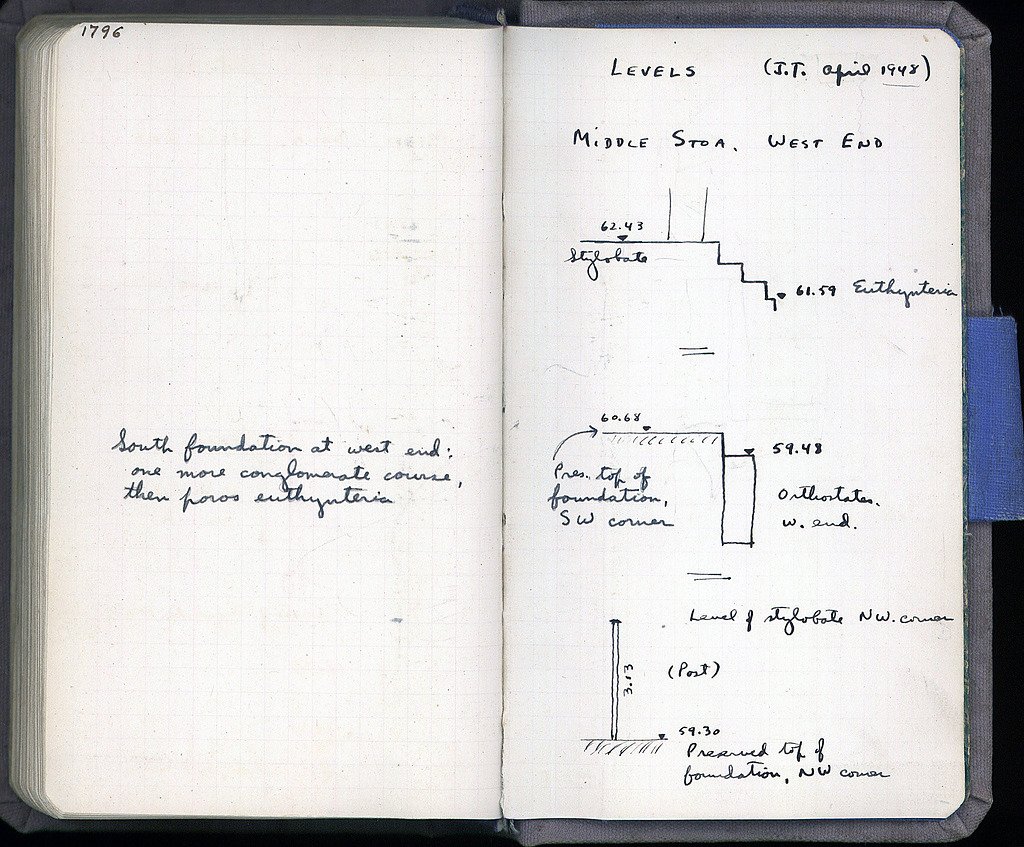 1796
South foundation at west end:
one more conglomerate course,
then poros euthynteria
LEVELS (J.T. April 1948)
MIDDLE STOA. WEST END
62.43
Stylobate
61.59 Euthynteria
60.68
59.48
Pres. top of
foundation,
SW corner
Orthostates.
w. end.
Level of stylobate NW. corner
3.13
(Post)
59.30
Preserved top of
foundation, NW corner